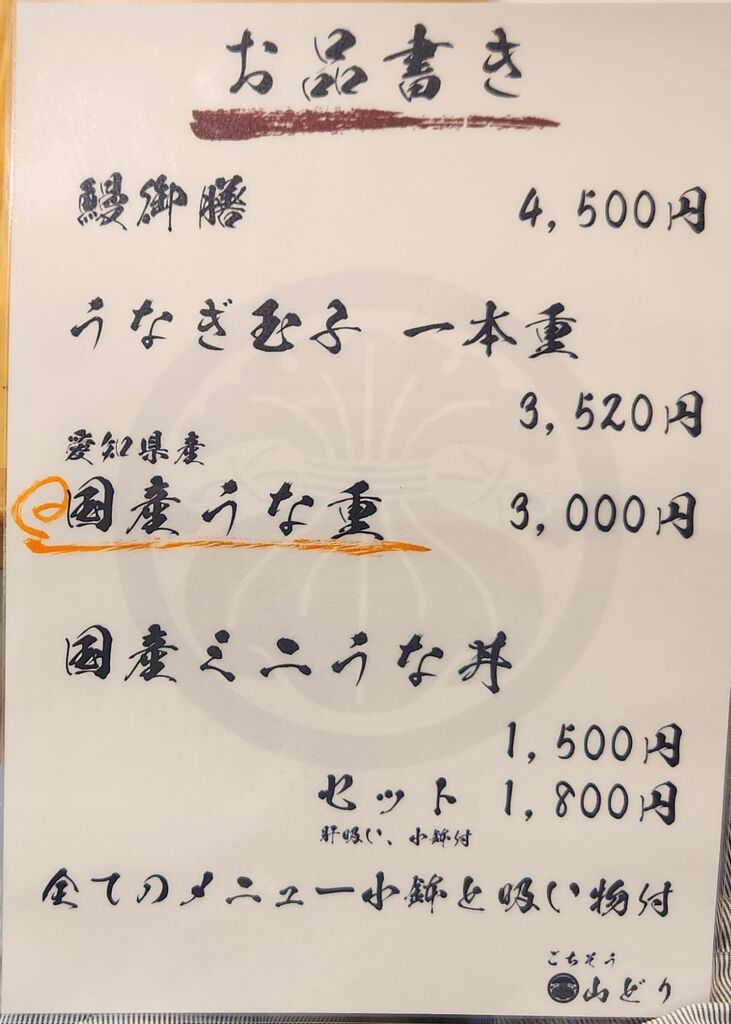 お品書き
鰻御膳 4,500円
うなぎ玉子 一本重
3,520円
愛知県産
国産うな重 3,000円
国産ミニうな丼
1,500円
セット 1,800円
肝吸い、小鉢付
全てのメニュー小鉢と吸い物付
ごちそう
山どり